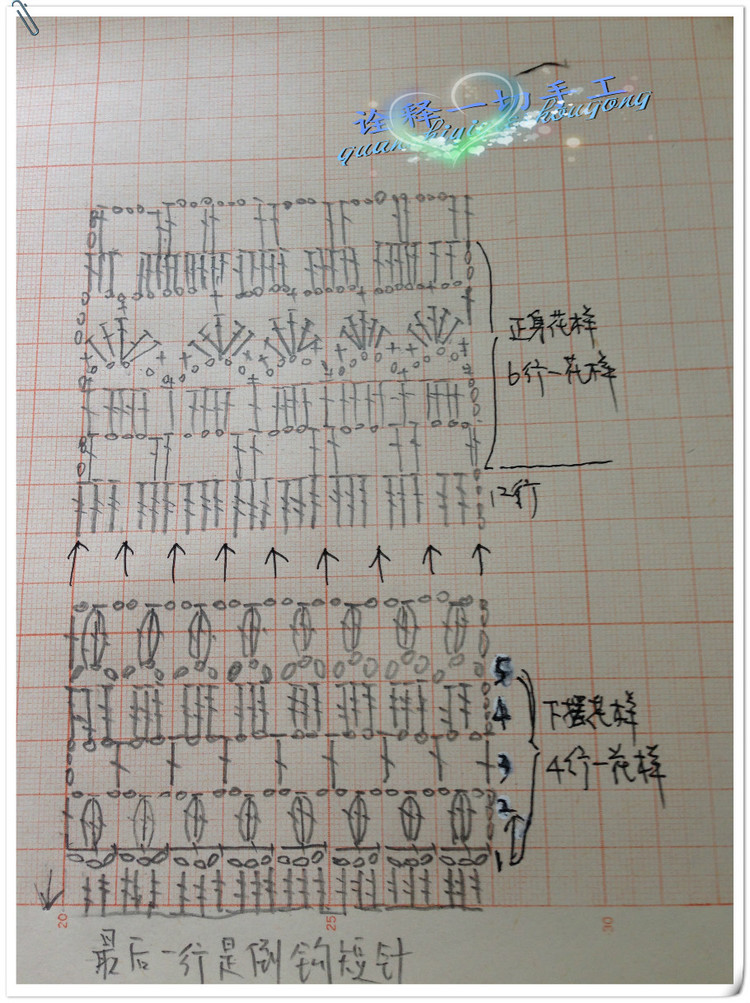 诠释一切手工
quan shi yi qie shougong
正身花样
6行一花样
12行
5
4
下摆花样
3
4行一花样
2
1
20
25
30
最后一行是倒钩短针